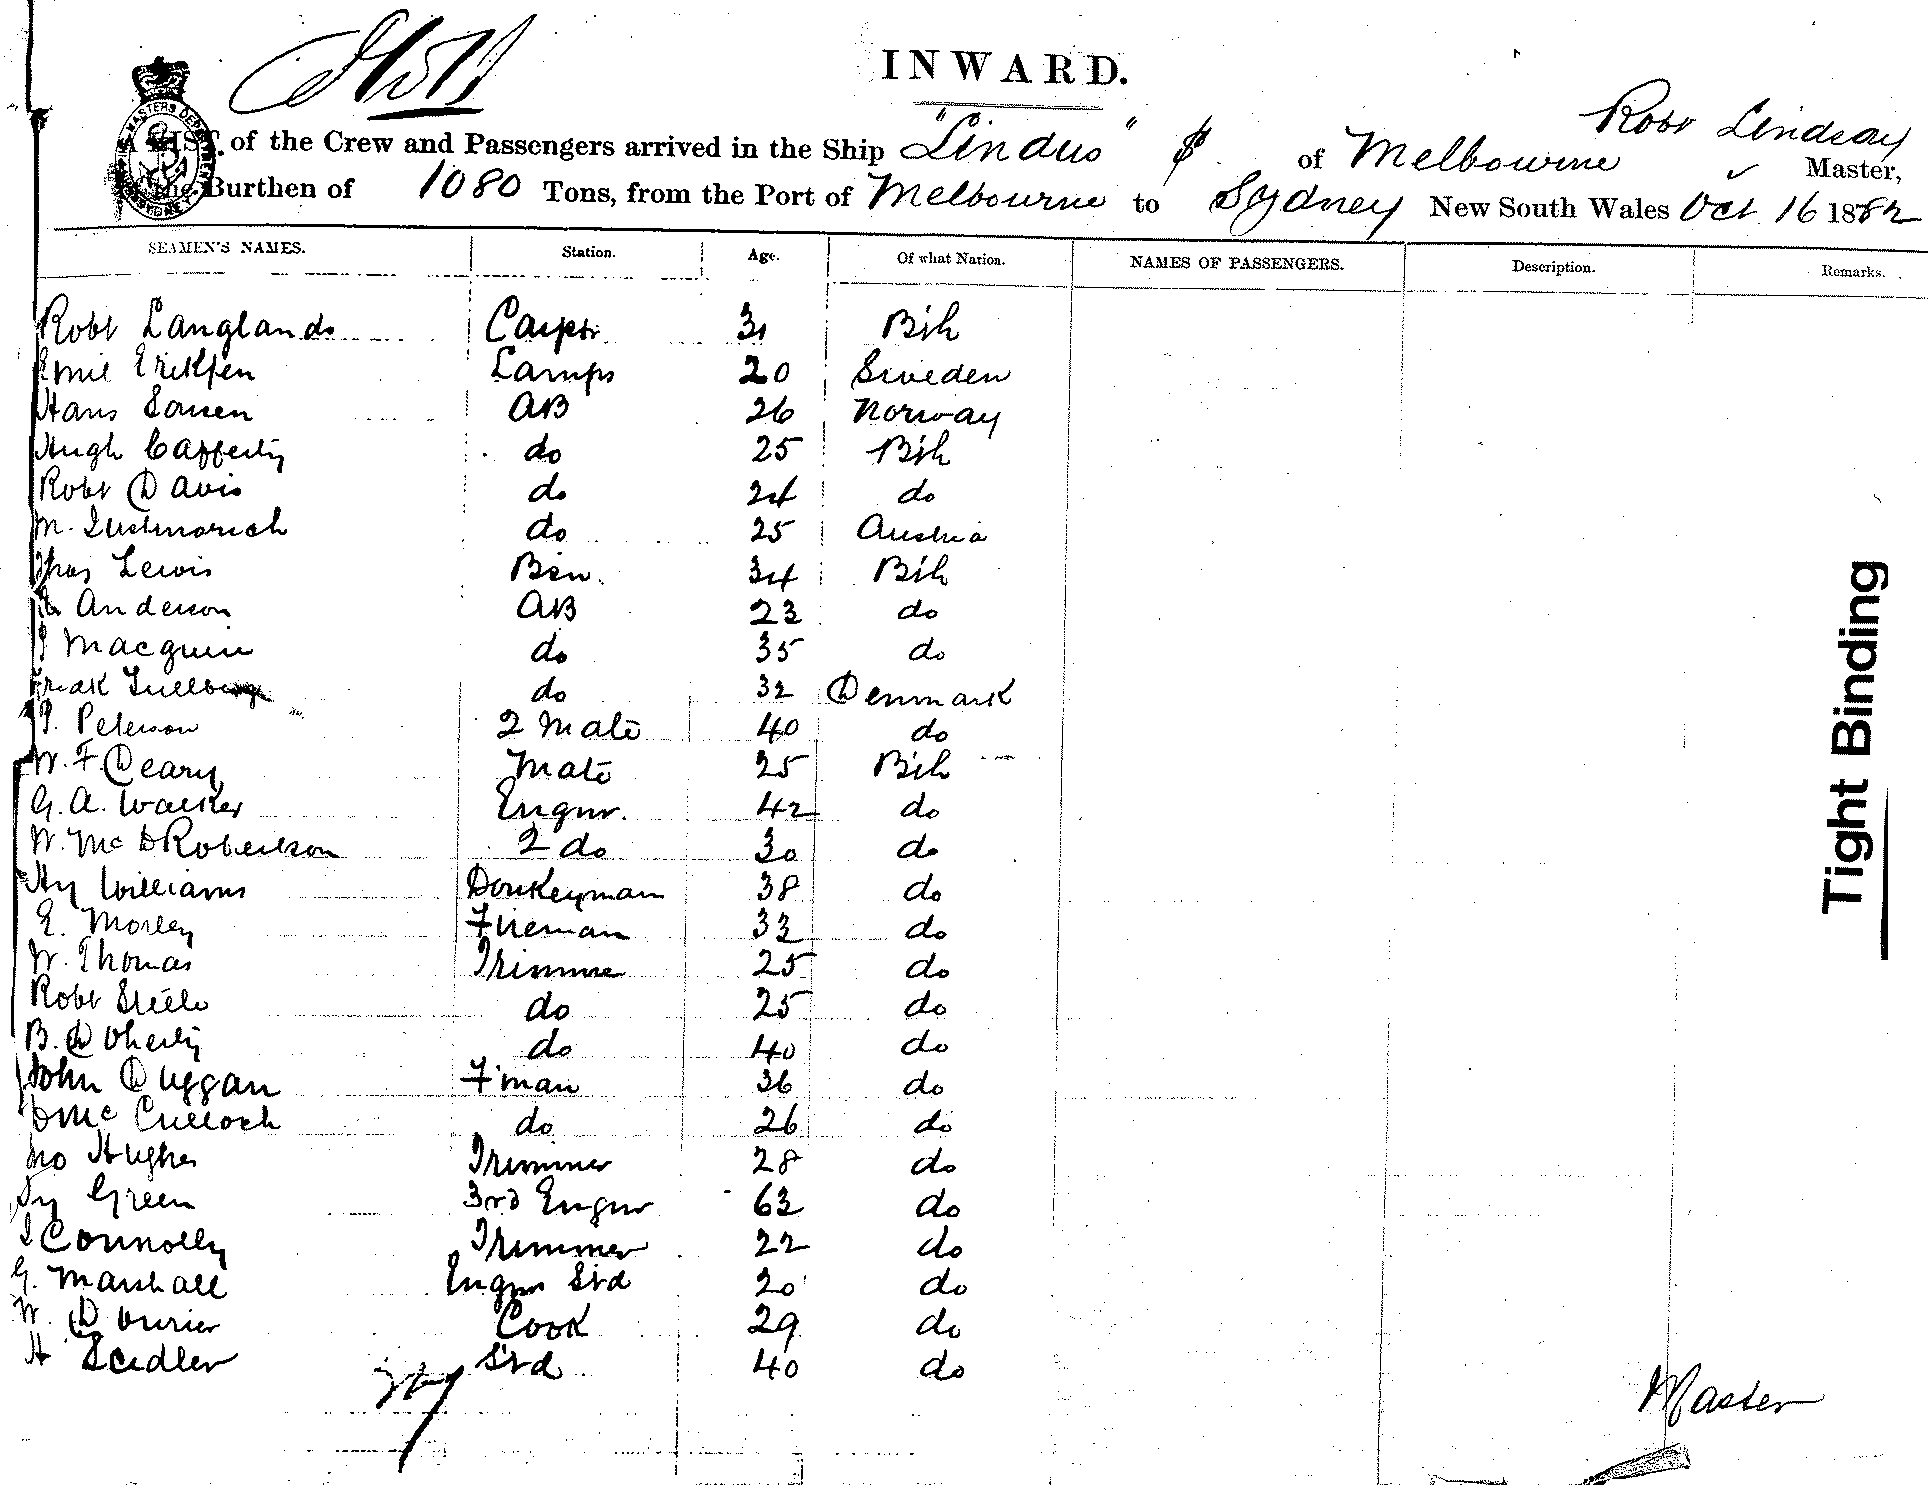 INWARD.
LIST of the Crew and Passengers arrived in the Ship "Lindus" S of Melbourne Robt Lindsay Master,
the Burthen of 1080 Tons, from the Port of Melbourne to Sydney New South Wales Oct 16 1882
SEAMEN'S NAMES. Station. Age. Of what Nation. NAMES OF PASSENGERS. Description. Remarks.
Robt Langlands Carptr 31 Bih
Emil Erikfen Lamps 20 Sweden
Hans AB 26 Norway
Hugh Cafferty do 25 Bih
Robt Davis do 24 do
M. do 25 Austria
Thos Lewis Bsn. 34 Bih
Anderson AB 23 do
Macquire do 35 do
do 32 Denmark
P. Peterson 2 Mate 40 do
W. F Deary Mate 25 Bih
G. A. Walker Engnr. 42 do
W. Mc D Robertson 2 do 30 do
Hy Williams Donkeyman 38 do
E. Morley Fireman 33 do
W. Thomas Trimmer 25 do
Robt Steele do 25 do
B. Doherty do 40 do
John Duggan F'man 36 do
D Mc Culloch do 26 do
Jno Hughes Trimmer 28 do
Hy Green 3rd Engnr 63 do
J Connolly Trimmer 22 do
G. Marshall Engnrs Std 20 do
W. Cook 29 do
H Seidler Std 40 do
Master
Tight Binding